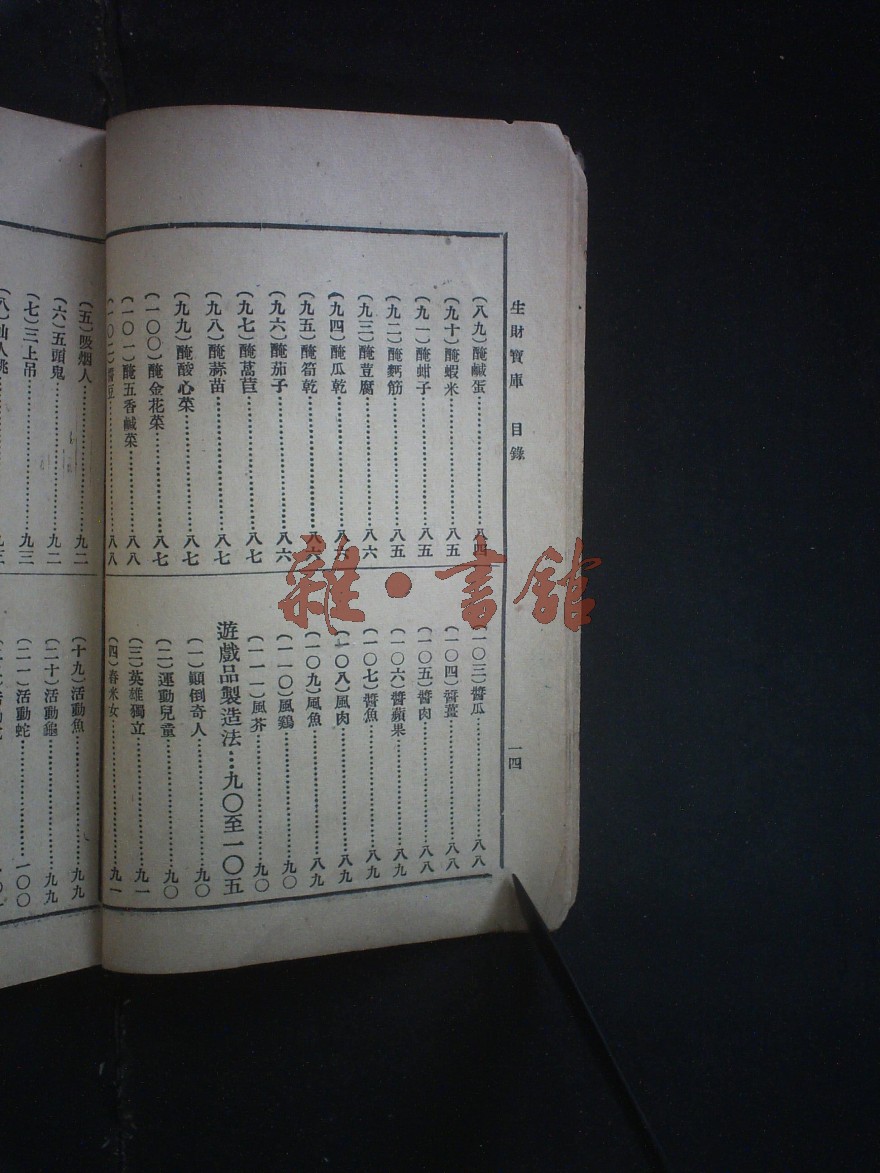 生財寶庫 目錄 一四
（八九）醃鹹蛋……八四
（九十）醃蝦米……八五
（九一）醃蚶子……八五
（九二）醃麪筋……八五
（九三）醃荳腐……八六
（九四）醃瓜乾……八六
（九五）醃筍乾……八六
（九六）醃茄子……八六
（九七）醃萵苣……八七
（九八）醃蒜苗……八七
（九九）醃酸心菜……八七
（一〇〇）醃金花菜……八七
（一〇一）醃五香鹹菜……八八
（一〇二）醬豆……八八
（一〇三）醬瓜……八八
（一〇四）醬薑……八八
（一〇五）醬肉……八八
（一〇六）醬蘋果……八九
（一〇七）醬魚……八九
（一〇八）風肉……八九
（一〇九）風魚……八九
（一一〇）風鷄……九〇
（一一一）風芥……九〇
遊戲品製造法…九〇至一〇五
（一）顚倒奇人……九〇
（二）運動兒童……九〇
（三）英雄獨立……九一
（四）舂米女……九一
（五）吸烟人……九二
（六）五頭鬼……九二
（七）三上吊……九三
（八）仙人跳……九三
（十九）活動魚……九九
（二十）活動龜……九九
（二一）活動蛇……一〇〇
雜·書館